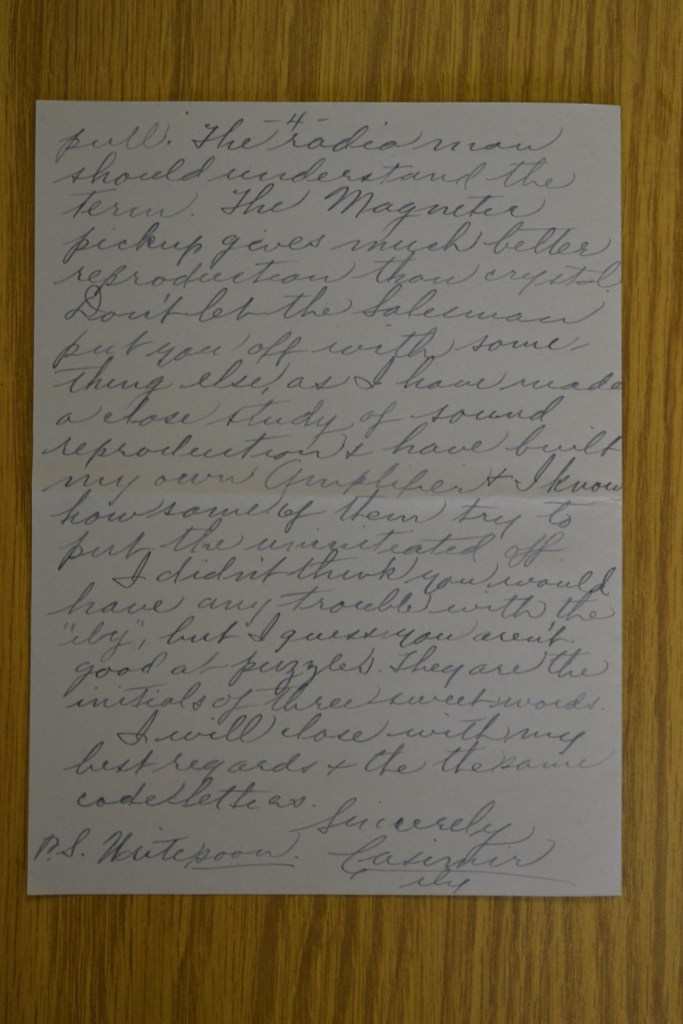 -4-
pull. The radio man
should understand the
term. The Magneter
pickup gives much better
reproduction than crystal.
Don't let the Salesman
put you off with some-
thing else, as I have made
a close study of sound
reproduction & have built
my own Amplifier & I know
how some of them try to
put the uninitiated off
I didn't think you would
have any trouble with the
"ily", but I guess you aren't
good at puzzles. They are the
initials of three sweet words.
I will close with my
best regards & the the same
code letters.
Sincerely
P.S. Write soon. Casimir
ily